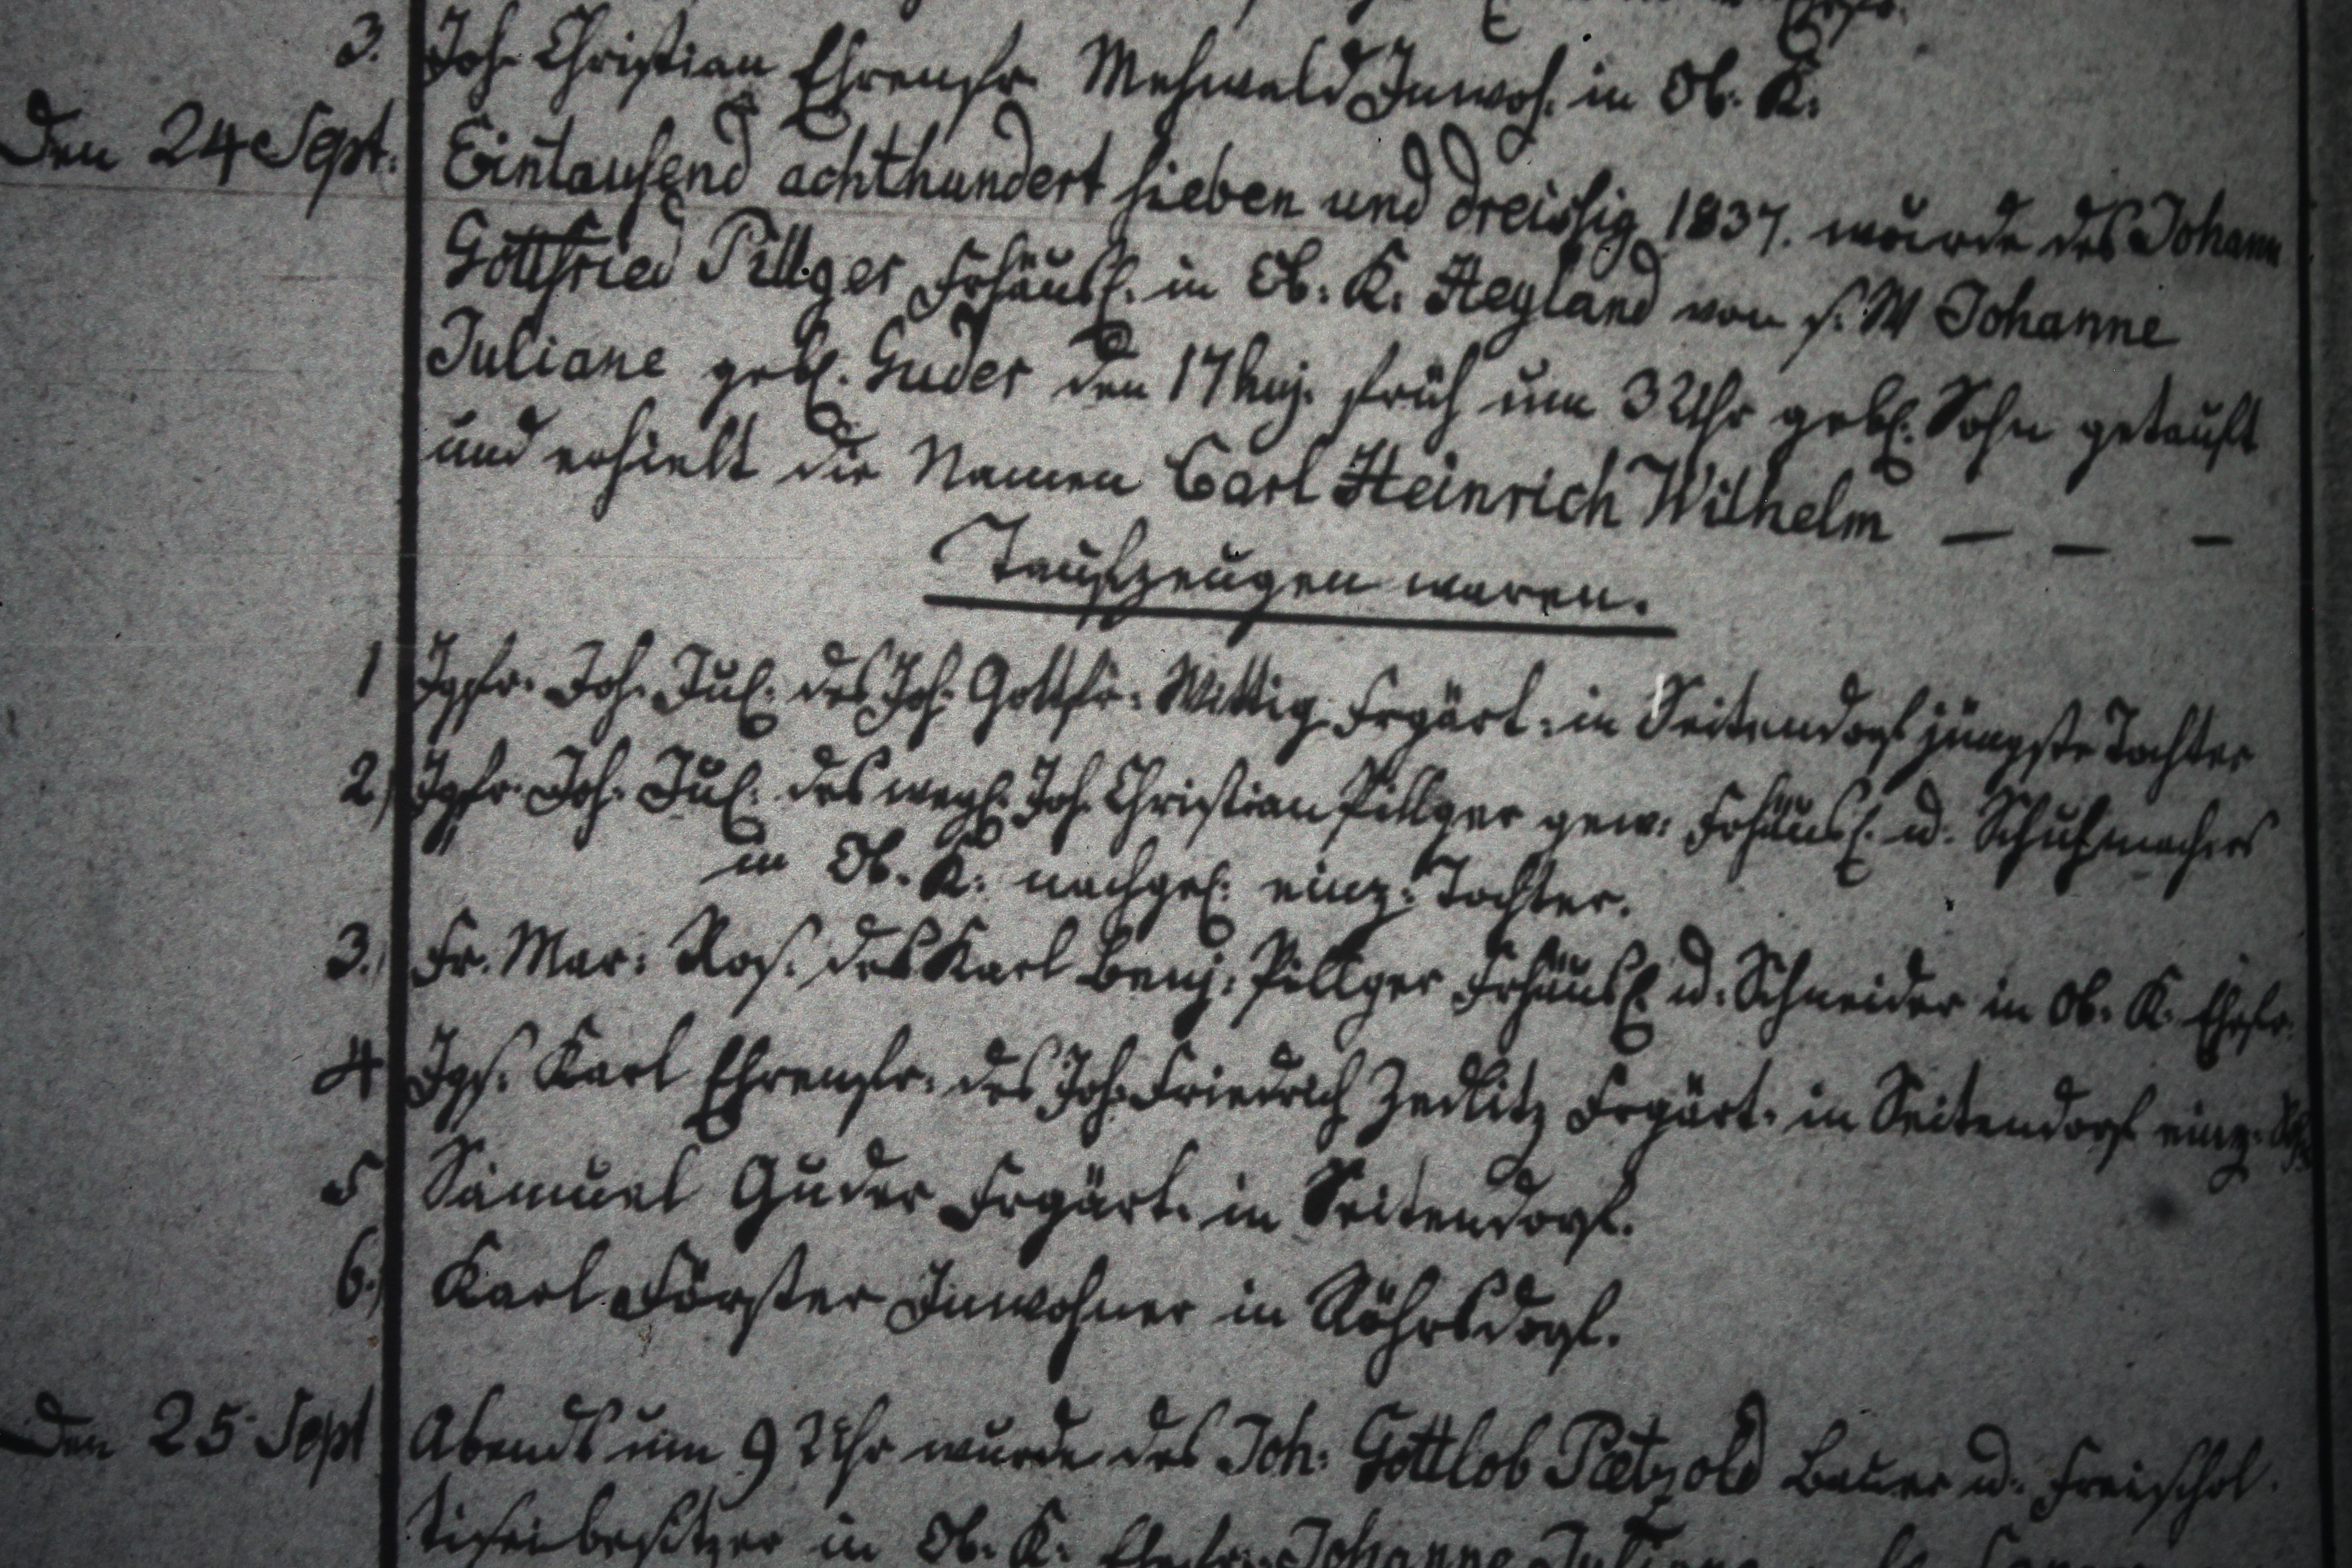 3. Joh. Christian Ehrenfr. Mehwald Inwoh. in Ob. K.
Den 24 Sept. Eintausend achthundert sieben und dreissig 1837. wurde des Johann
Gottfried Pillger Frhäusl. in Ob. K. Heyland von s. W Johanne
Juliane geb. Guder den 17 huj. früh um 3 Uhr geb. Sohn getauft
und erhielt die Namen Carl Heinrich Wilhelm — — —
Taufzeugen waren.
1 Jgfr. Joh. Jul. des Joh. Gottfr. Wittig Frgärt. in Seitendorf jüngste Tochter
2) Jgfr. Joh. Jul. des weyl. Joh. Christian Pillger gew. Frhäusl. u. Schuhmachers
in Ob. K. nachgel. einz. Tochter.
3. Fr. Mar. Ros. des Karl Benj. Pillger Frhäusl. u. Schneider in Ob. K. Ehefr.
4 Jgs. Karl Ehrenfr. des Joh. Friedrich Zedlitz Frgärt. in Seitendorf einz.
5 Samuel Guder Frgärt. in Seitendorf.
6.) Karl Förster Inwohner in Röhrsdorf.
Den 25 Sept Abends um 9 Uhr wurde des Joh. Gottlob Pætzold Bauer u. Freischol
tiseibesitzer in Ob. K. Ehefr. Johanne Juliane